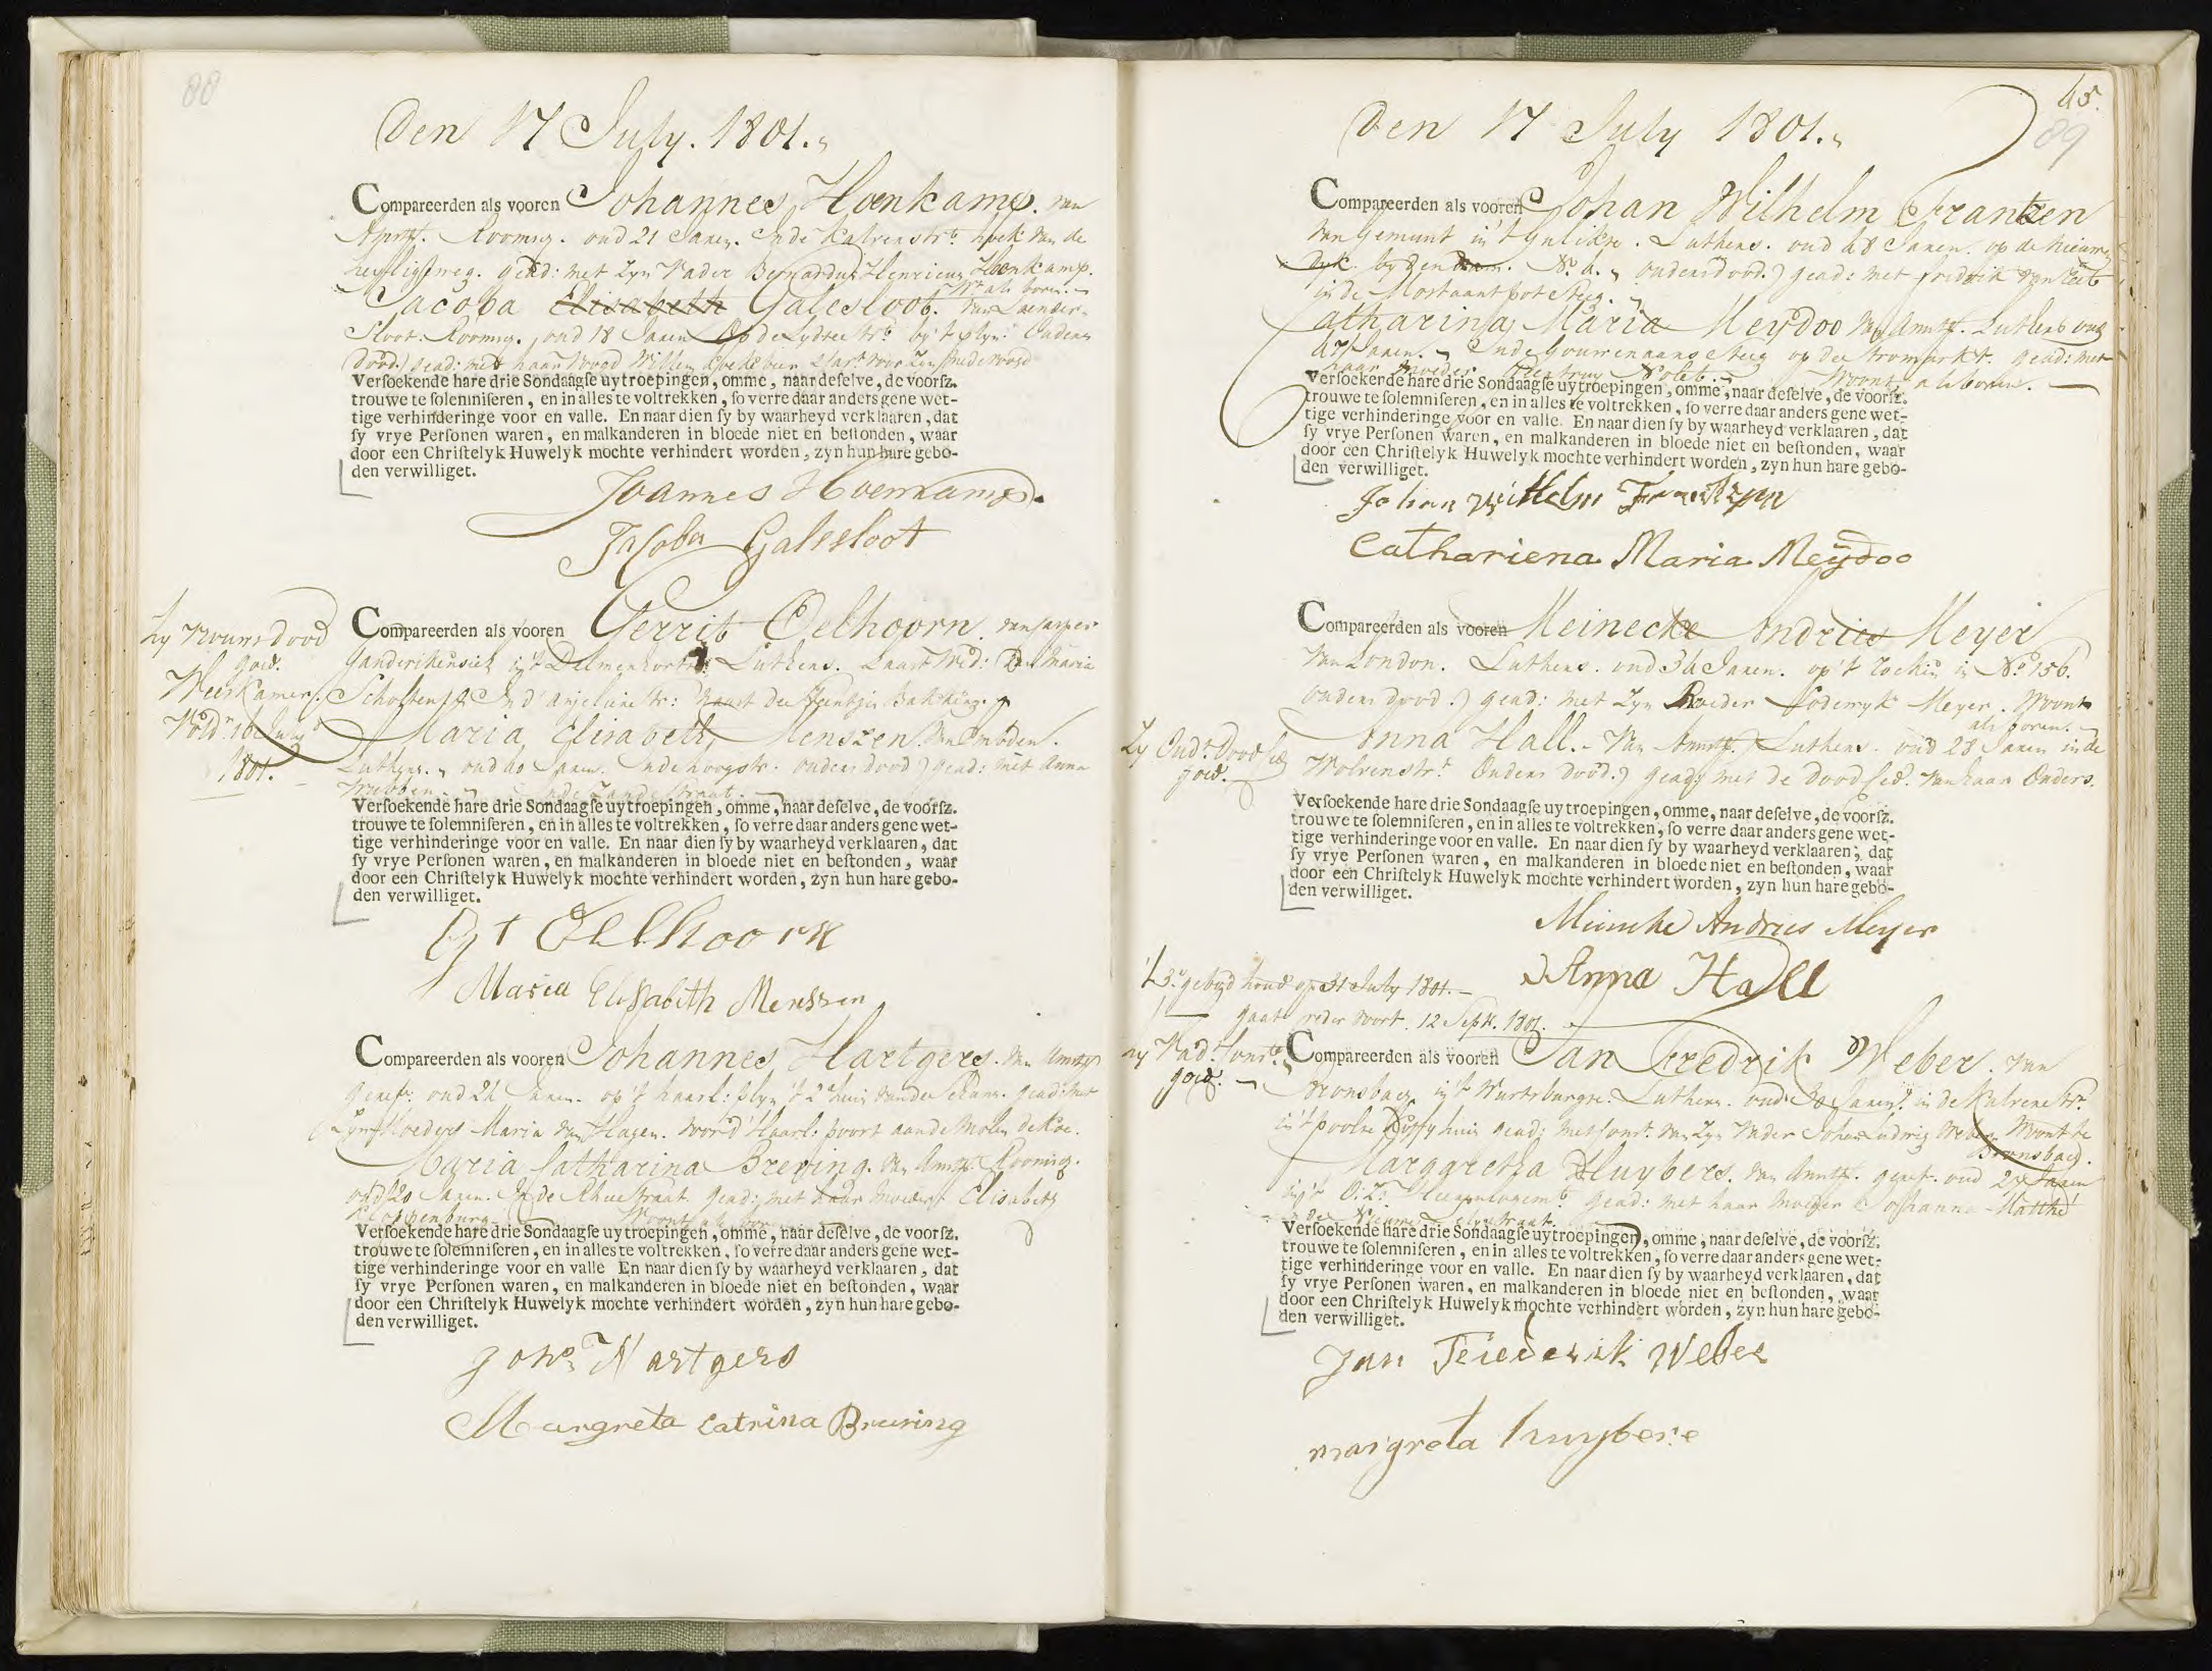 88
Den 17 July. 1801.
Compareerden als vooren Johannes Hoenkamp. van
Amst. Roomsg. oud 21 Jaren. In de Kalverstr. hoek van de
heyligeweg. gead: met Zyn Vader Bernardus Henricus Hoenkamp.
Wt. als boven.
Jacoba Elisabeth Galesloot. van Loender-
sloot. Roomsg. oud 18 Jaren Op de Lydsestr. by 't plyn: Ouders
dood.) gead: met haar Voogd Willem
Versoekende hare drie Sondaagse uytroepingen, omme, naar deselve, de voorsz.
trouwe te solemniseren, en in alles te voltrekken, so verre daar anders gene wet-
tige verhinderinge voor en valle. En naar dien sy by waarheyd verklaaren, dat
sy vrye Personen waren, en malkanderen in bloede niet en bestonden, waar
door een Christelyk Huwelyk mochte verhindert worden, zyn hun hare gebo-
den verwilliget.
Joannes Hoenkamp.
Jacoba Galesloot
hy Vrouws dood
goed.
Weeskamer
Vold: 16 July
1801.
Compareerden als vooren Gerrit Oelhoorn. van
in 't Delmenhorts. Luthers. Laast Wed: van Maria
Scholten, In d' anjeliers str: naast de
Maria Elisabeth Menszen. van Emden.
Luthers. oud 40 Jaren. In de hoogstr. ouders dood) gead: met Anna
Wubben. in de Zandstraat.
Versoekende hare drie Sondaagse uytroepingen, omme, naar deselve, de voorsz.
trouwe te solemniseren, en in alles te voltrekken, so verre daar anders gene wet-
tige verhinderinge voor en valle. En naar dien sy by waarheyd verklaaren, dat
sy vrye Personen waren, en malkanderen in bloede niet en bestonden, waar
door een Christelyk Huwelyk mochte verhindert worden, zyn hun hare gebo-
den verwilliget.
Gt Oelhoorn
Maria Elisabeth Menszen
Compareerden als vooren Johannes Hartgers. van Amst
geref: oud 24 Jaren. op 't haarl: plyn 't 2e huis van de Schans. gead: met
Zyn Moeder Maria van Hagen. voor d' Haarl: poort aan de Molen de Roe.
Maria Catharina Brering. van Amst. Roomsg.
oud 20 Jaren. In de Rhee straat. gead: met haar moeder Elisabeth
Kloppenburg. Woont als boven
Versoekende hare drie Sondaagse uytroepingen, omme, naar deselve, de voorsz.
trouwe te solemniseren, en in alles te voltrekken, so verre daar anders gene wet-
tige verhinderinge voor en valle En naar dien sy by waarheyd verklaaren, dat
sy vrye Personen waren, en malkanderen in bloede niet en bestonden, waar
door een Christelyk Huwelyk mochte verhindert worden, zyn hun hare gebo-
den verwilliget.
Johs Hartgers
Margreta Catrina Bruring
45.
89
Den 17 July 1801.
Compareerden als vooren Johan Wilhelm Frantzen
van Gemunt in 't Gulikse. Luthers. oud 48 Jaren. op de Nieuwe
dyk by den dam. No. 6. ouders dood.) gead: met Fredrik van
in de Mostaartpot Steeg.
Catharina Maria Meydoo van Amst. Luthers oud
47 Jaren. In de Gouwenaars Steeg op de stromarkt. gead: met
haar Moeder Geertruy Nolet. Woont als boven.
Versoekende hare drie Sondaagse uytroepingen, omme, naar deselve, de voorsz.
trouwe te solemniseren, en in alles te voltrekken, so verre daar anders gene wet-
tige verhinderinge voor en valle. En naar dien sy by waarheyd verklaaren, dat
sy vrye Personen waren, en malkanderen in bloede niet en bestonden, waar
door een Christelyk Huwelyk mochte verhindert worden, zyn hun hare gebo-
den verwilliget.
Johan Wilhelm Frantzen
Cathariena Maria Meÿdoo
Compareerden als vooren Meinecke Andries Meyer
van London. Luthers. oud 34 Jaren. op 't Cockin in No. 156.
ouders dood.) gead: met Zyn Broeder Lodewyk Meyer. Woont
als boven.
Zy Oudr. Dood Ced
goed.
Anna Hall. van Amst. Luthers. oud 28 Jaren in de
Wolvenstr. Ouders dood.) gead: met de dood Ced. van haar Ouders.
Versoekende hare drie Sondaagse uytroepingen, omme, naar deselve, de voorsz.
trouwe te solemniseren, en in alles te voltrekken, so verre daar anders gene wet-
tige verhinderinge voor en valle. En naar dien sy by waarheyd verklaaren, dat
sy vrye Personen waren, en malkanderen in bloede niet en bestonden, waar
door een Christelyk Huwelyk mochte verhindert worden, zyn hun hare gebo-
den verwilliget.
Meineke Andries Meyer
Anna Hall
't 3e gebod houd op 31 July 1801.
gaat weder voort. 12 Septr. 1801.
hy Vad: Const:
goed.
Compareerden als vooren Jan Fredrik Weber. van
Bronsbag in 't Wurtsburgse. Luthers. oud 30 Jaren. in de Kalverstr.
in 't poolse Coffyhuis gead: met Const. van Zyn Vader Johan Ludwig Weber Woont te
Bronsbag.
Margaretha Huybers. van Amst. geref. oud 27 Jaren
gead: met haar moeder Johanna Matthé
in de Nieuwe
Versoekende hare drie Sondaagse uytroepingen, omme, naar deselve, de voorsz.
trouwe te solemniseren, en in alles te voltrekken, so verre daar anders gene wet-
tige verhinderinge voor en valle. En naar dien sy by waarheyd verklaaren, dat
sy vrye Personen waren, en malkanderen in bloede niet en bestonden, waar
door een Christelyk Huwelyk mochte verhindert worden, zyn hun hare gebo-
den verwilliget.
Jan Friederik Weber
margreta huybers